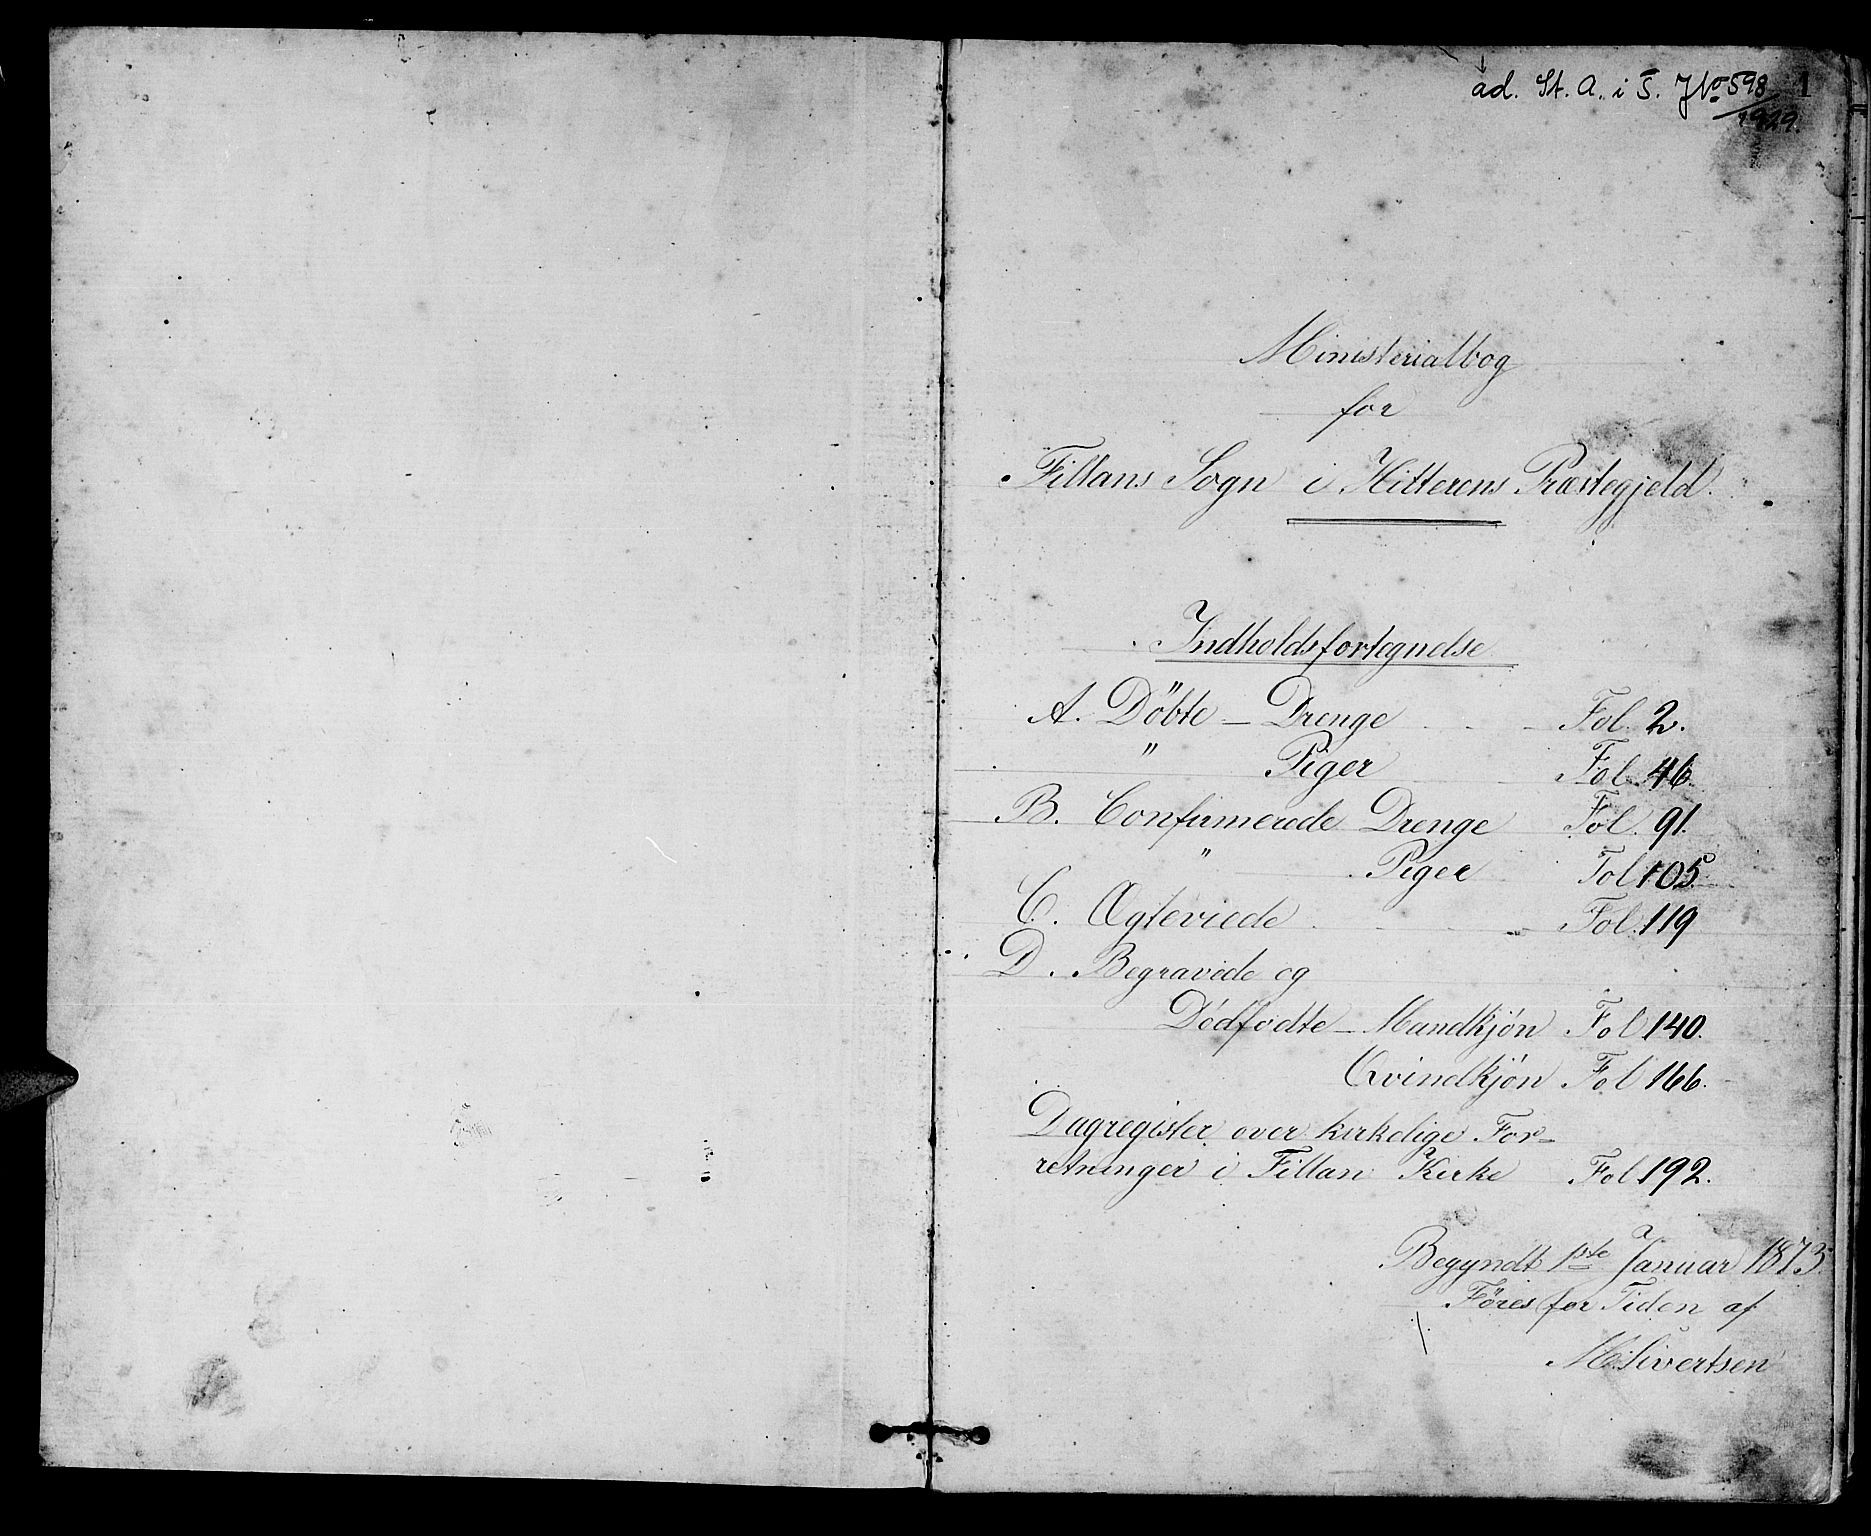 ad. St. A. i T. J No 598 1
1929.
Ministerialbog
for
Fillans Sogn i Hitterens Præstegjeld.
Indholdsfortegnelse
A. Döbte – Drenge Fol. 2.
" Piger Fol. 46.
B. Confirmerede Drenge Fol. 91.
" Piger Fol 105.
C. Ægteviede Fol. 119
D. Begravede og
Dødfødte – Mandkjøn Fol 140.
Qvindkjøn Fol 166.
Dagregister over kirkelige For-
retninger i Fillan Kirke Fol 192.
Begyndt 1ste Januar 1873.
Föres for Tiden af
M. Sivertsen